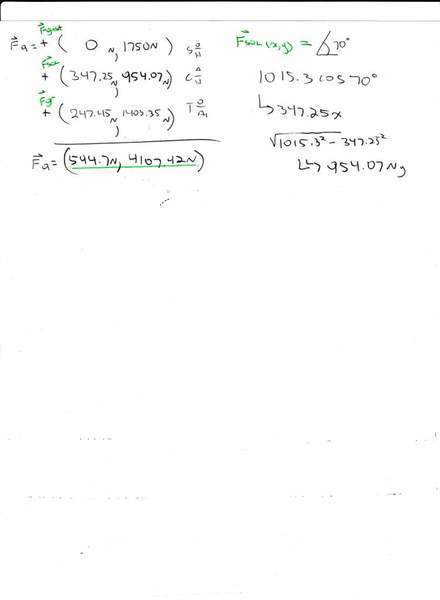 F⃗gast
F⃗a = + ( 0 N, 1750N) S O/H
F⃗sol
+ (347.25 N, 954.07N) C A/H
F⃗gr
+ (247.45 N, 1403.35N) T O/A
F⃗a = (594.7N, 4107.42N)
F⃗sol (x,y) = ∠70°
1015.3 cos 70°
↳ 347.25x
√1015.3² - 347.25²
↳ 954.07N y